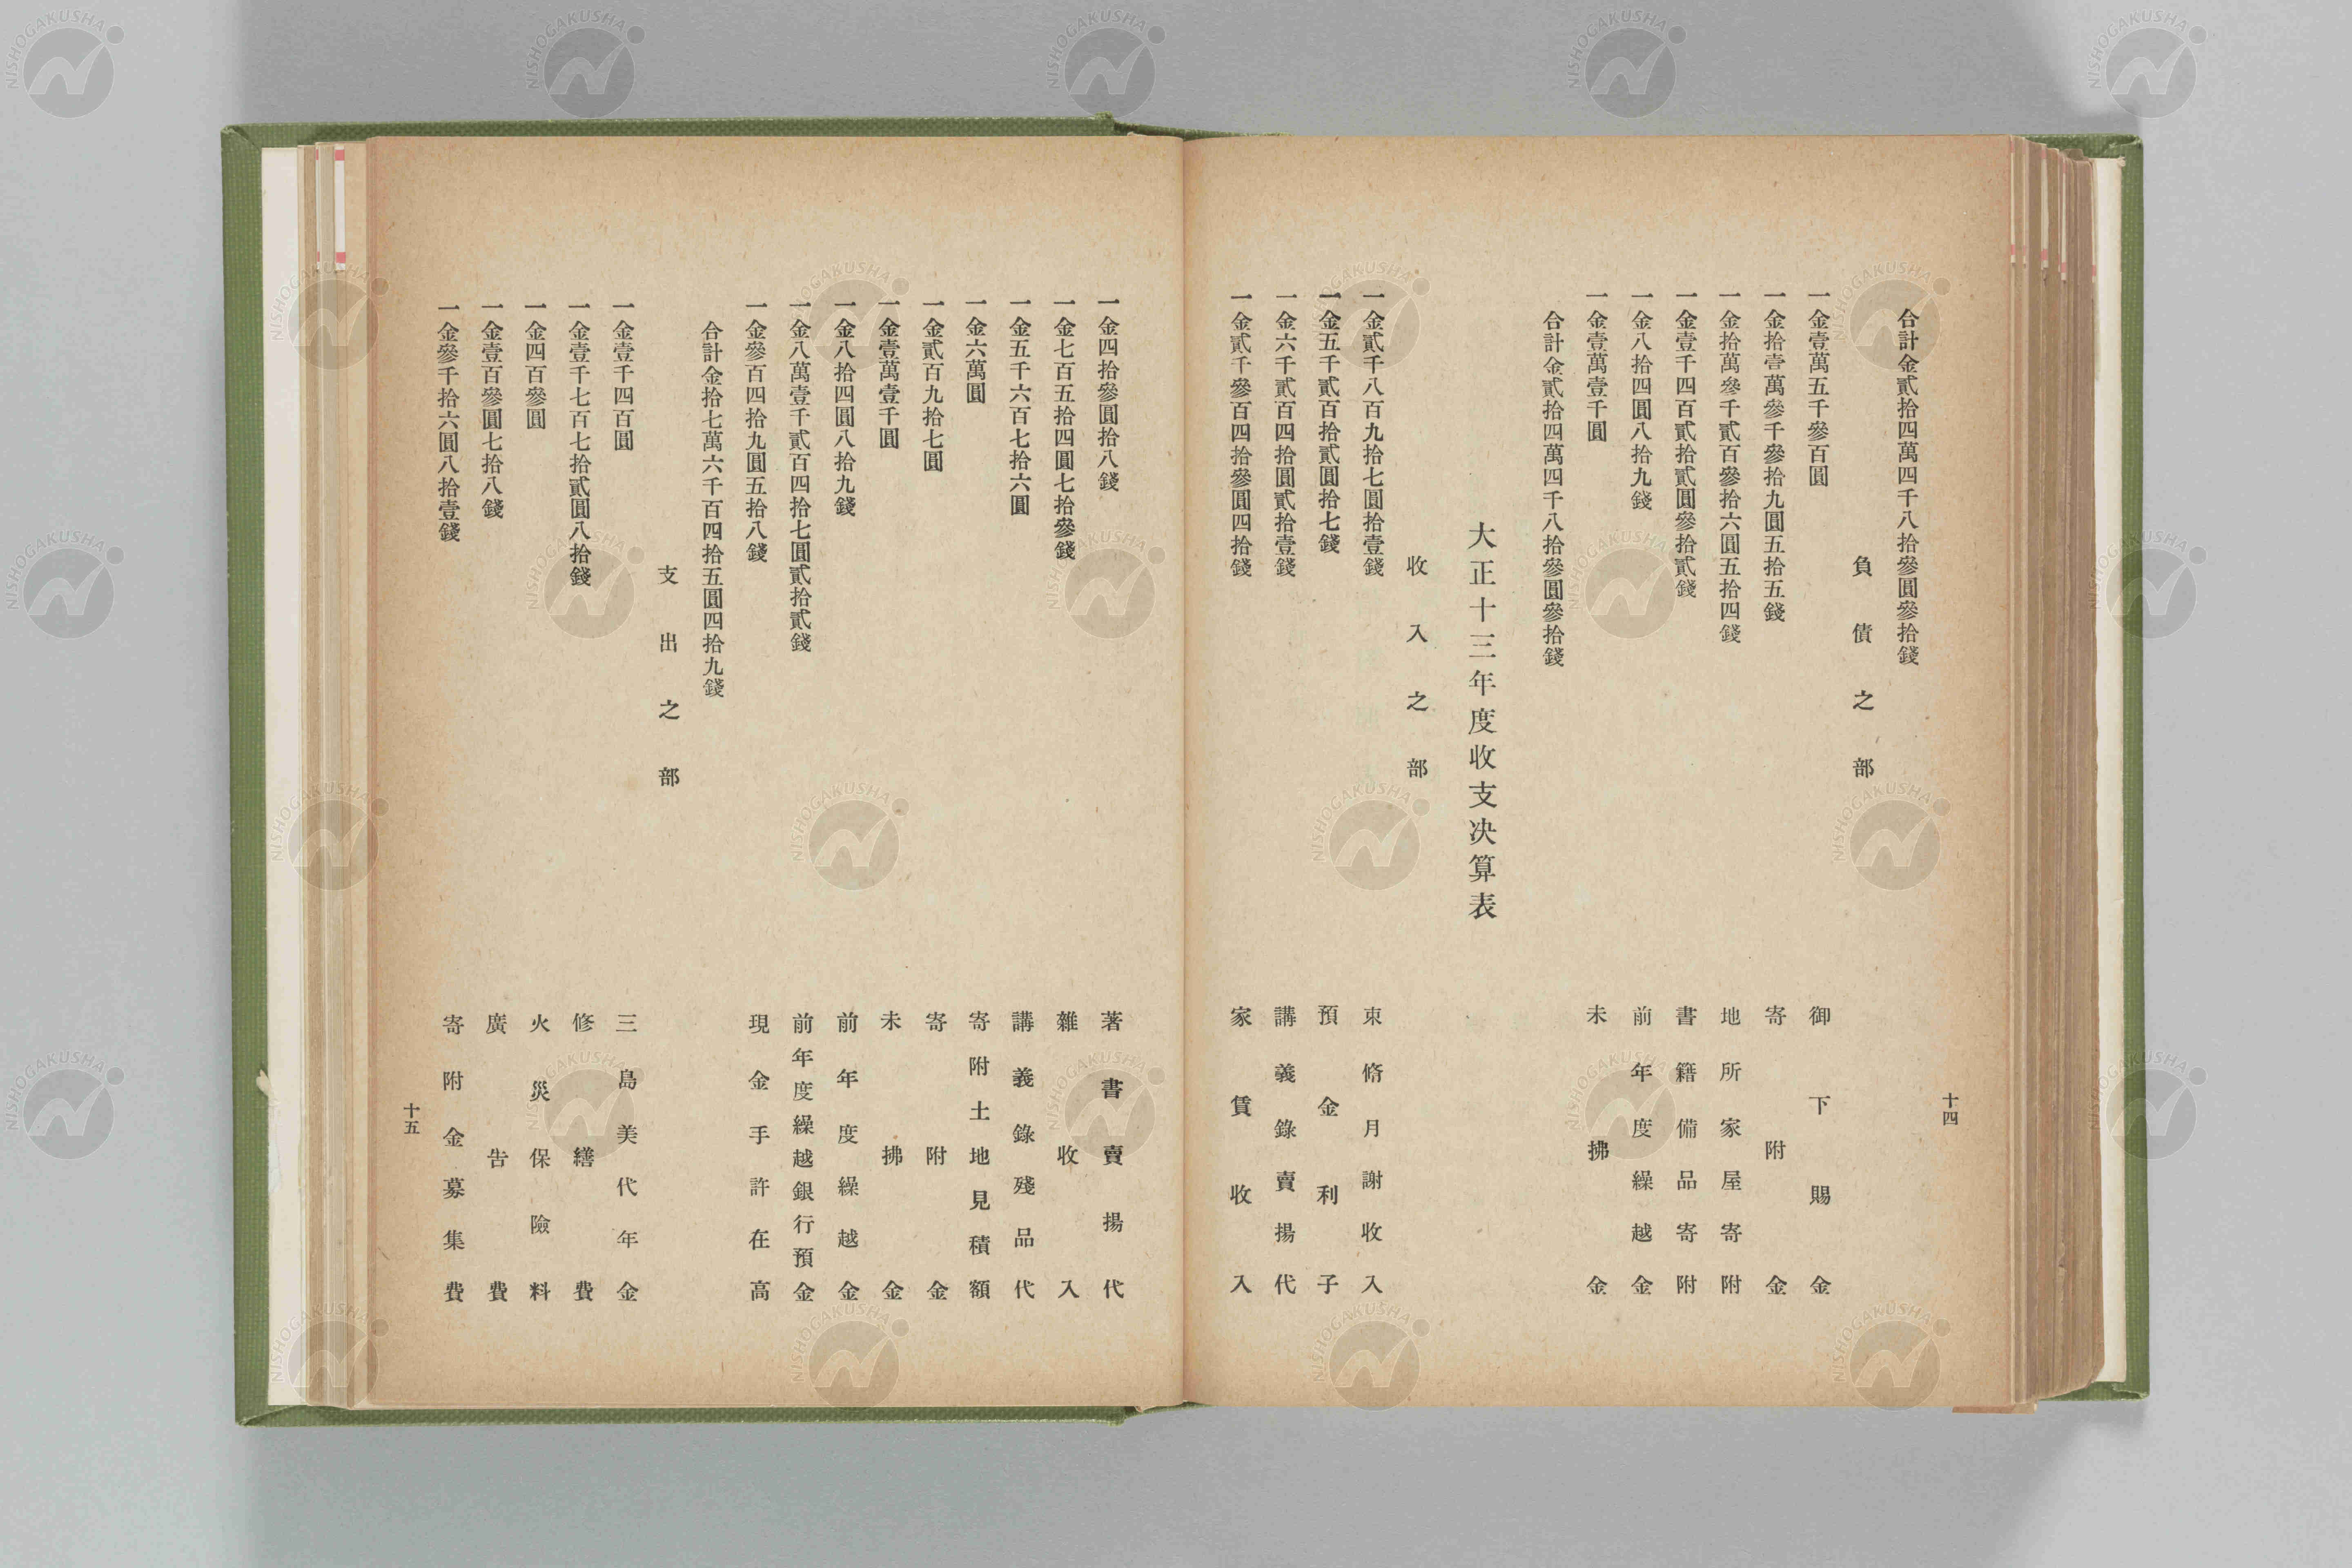 合計金貳拾四萬四千八拾參圓參拾錢
負債之部
一金壹萬五千參百圓 御下賜金
一金拾壹萬參千參拾九圓五拾五錢 寄附金
一金拾萬參千貳百參拾六圓五拾四錢 地所家屋寄附
一金壹千四百貳拾貳圓參拾貳錢 書籍備品寄附
一金八拾四圓八拾九錢 前年度繰越金
一金壹萬壹千圓 未拂金
合計金貳拾四萬四千八拾參圓參拾錢
大正十三年度收支决算表
收入之部
一金貳千八百九拾七圓拾壹錢 束脩月謝收入
一金五千貳百拾貳圓拾七錢 預金利子
一金六千貳百四拾圓貳拾壹錢 講義錄賣揚代
一金貳千參百四拾參圓四拾錢 家賃收入
十四
一金四拾參圓拾八錢 著書賣揚代
一金七百五拾四圓七拾參錢 雜收入
一金五千六百七拾六圓 講義錄殘品代
一金六萬圓 寄附土地見積額
一金貳百九拾七圓 寄附金
一金壹萬壹千圓 未拂金
一金八拾四圓八拾九錢 前年度繰越金
一金八萬壹千貳百四拾七圓貳拾貳錢 前年度繰越銀行預金
一金參百四拾九圓五拾八錢 現金手許在高
合計金拾七萬六千百四拾五圓四拾九錢
支出之部
一金壹千四百圓 三島美代年金
一金壹千七百七拾貳圓八拾錢 修繕費
一金四百參圓 火災保險料
一金壹百參圓七拾八錢 廣告費
一金參千拾六圓八拾壹錢 寄附金募集費
十五
NISHOGAKUSHA